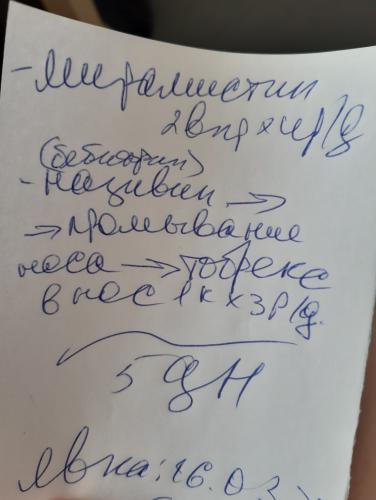 - Мирамистин
2 впр x 4 р/д
(бебиотик)
- називин →
→ промывание
носа → тобрекс
в нос 1 к x 3 р/д.
5 дн
Явка: 16.03